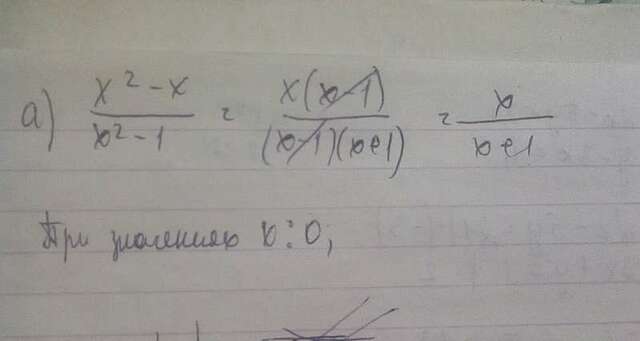 а) x²-x / x²-1 = x(x-1) / (x-1)(x+1) = x / x+1
При значениях x: 0;